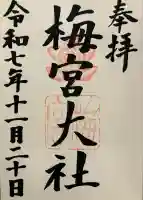 奉拝
梅宮大社
令和七年十一月二十日